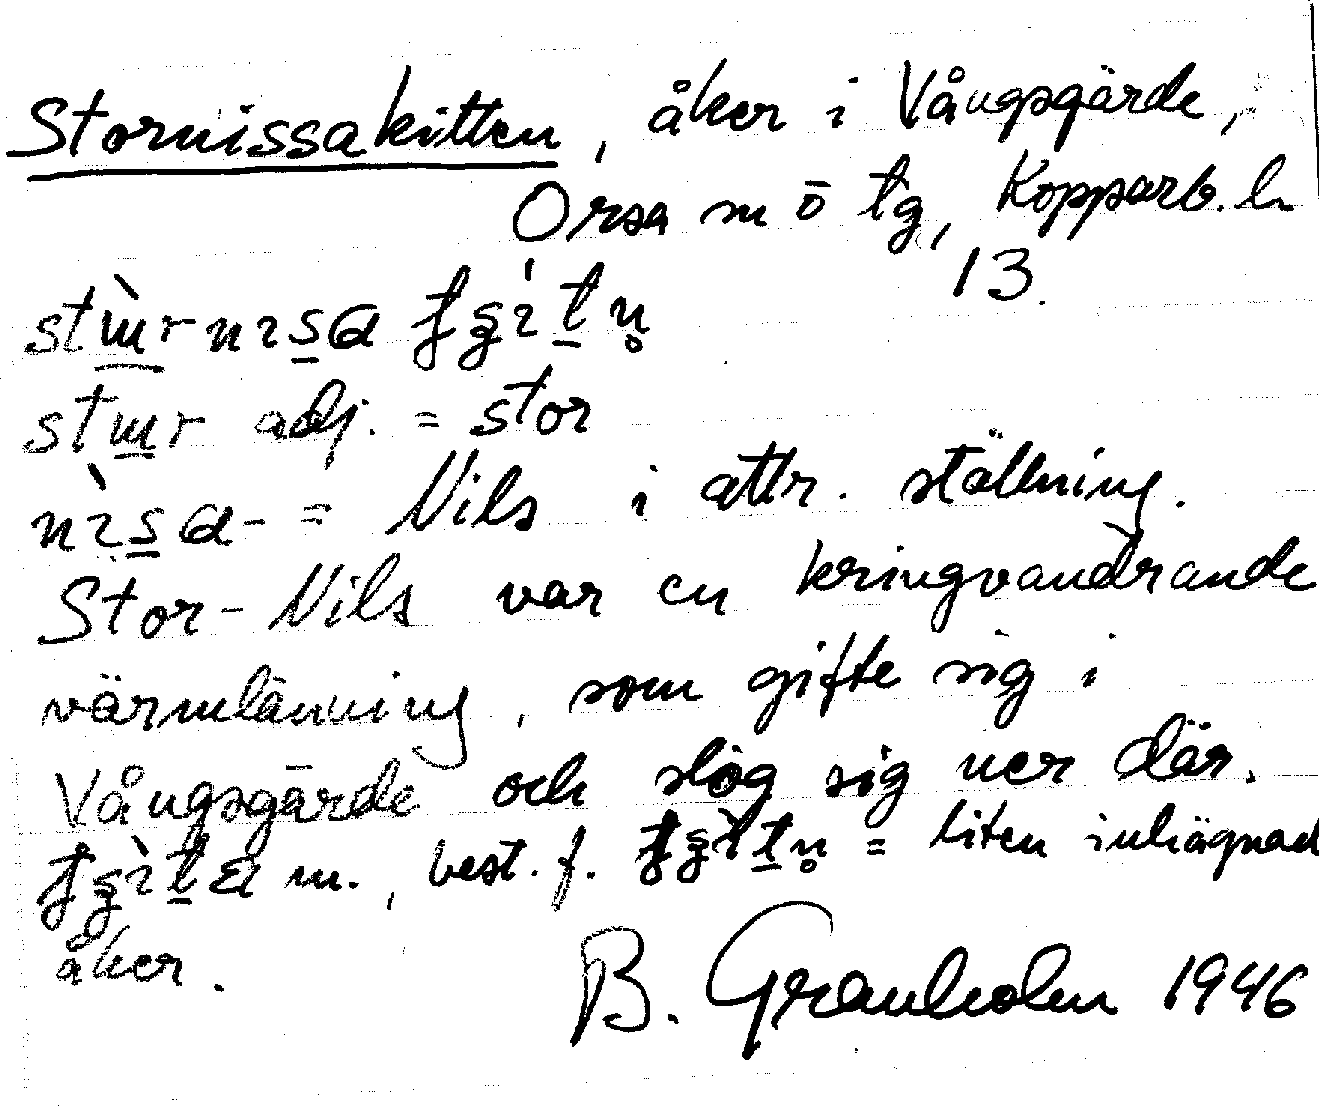 Stornissakitten, åker i Vångsgärde,
Orsa sn o tg, Kopparb. l.
13.
adj. = stor
= Nils i attr. ställning.
Stor-Nils var en kringvandrande
värmlänning, som gifte sig i
Vångsgärde och slog sig ner där.
m., best. f. = liten inhägnad
åker.
B. Granholm 1946